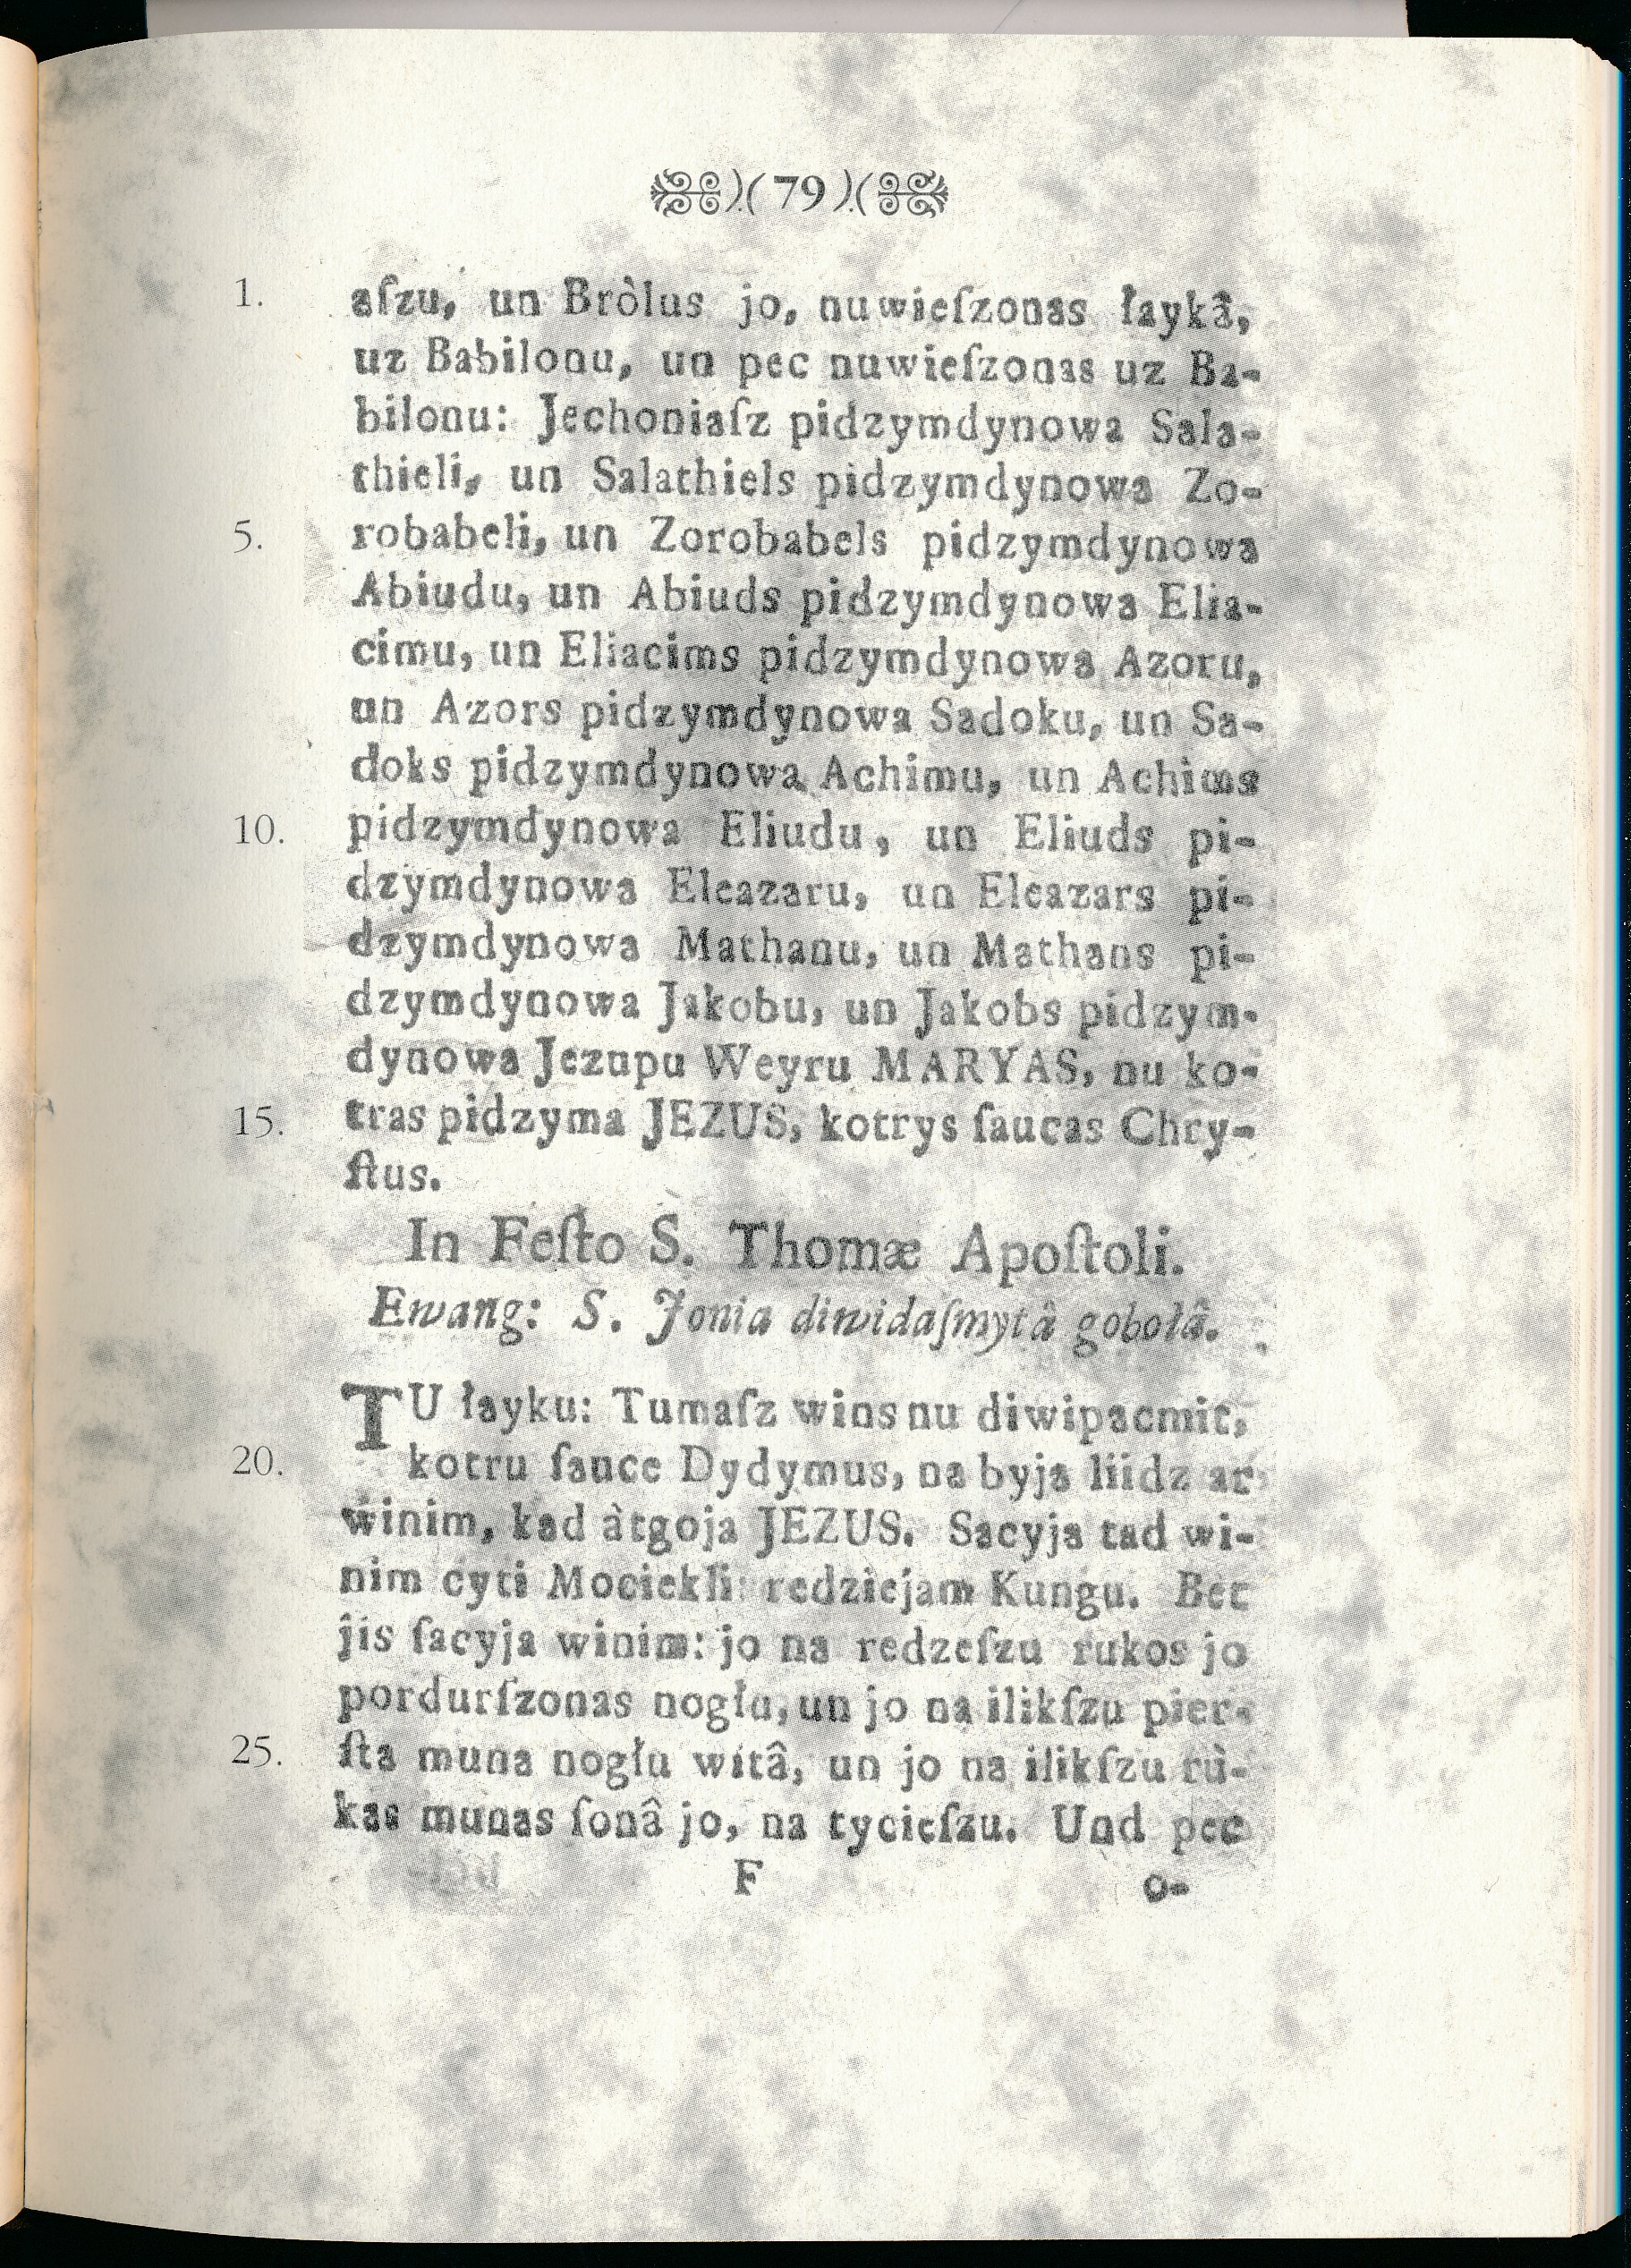 ).( 79 ).(
1. aſzu, un Bròlus jo, nuwieſzonas łaykâ,
uz Babilonu, un pec nuwieſzonas uz Ba-
bilonu: Jechoniaſz pidzymdynowa Sala-
thieli, un Salathiels pidzymdynowa Zo-
5. robabeli, un Zorobabels pidzymdynowa
Abiudu, un Abiuds pidzymdynowa Elia-
cimu, un Eliacims pidzymdynowa Azoru,
un Azors pidzymdynowa Sadoku, un Sa-
doks pidzymdynowa Achimu, un Achims
10. pidzymdynowa Eliudu, un Eliuds pi-
dzymdynowa Eleazaru, un Eleazars pi-
dzymdynowa Mathanu, un Mathans pi-
dzymdynowa Jakobu, un Jakobs pidzym-
dynowa Jezupu Weyru MARYAS, nu ko-
15. tras pidzyma JEZUS, kotrys ſaucas Chry-
ſtus.
In Feſto S. Thomæ Apoſtoli.
Ewang: S. Jonia diwidaſmytâ gobołâ.
TU łayku: Tumaſz wins nu diwipacmit,
20. kotru ſauce Dydymus, na byja liidz ar
winim, kad àtgoja JEZUS. Sacyja tad wi-
nim cyti Mociekli: redziejam Kungu. Bet
jis ſacyja winim: jo na redzeſzu rukos jo
pordurſzonas nogłu, un jo na ilikſzu pier-
25. ſta muna nogłu witâ, un jo na ilikſzu rù-
kas munas ſonâ jo, na tycieſzu. Und pec
F o-